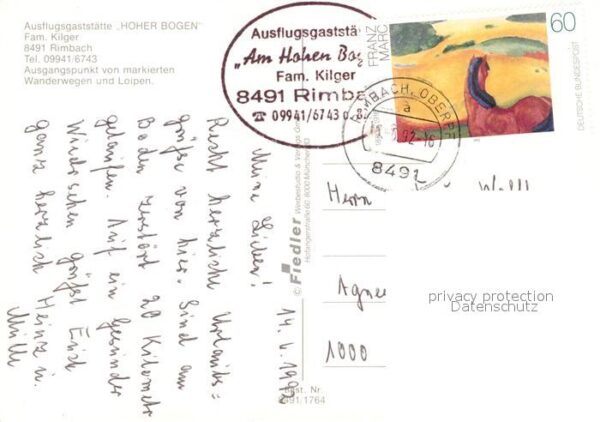 Ausflugsgaststätte „HOHER BOGEN"
Fam. Kilger
8491 Rimbach
Tel. 09941/6743
Ausgangspunkt von markierten
Wanderwegen und Loipen.
Ausflugsgaststä
„Am Hohen Bog
Fam. Kilger
8491 Rimba
☎ 09941/6743 o. 8
FRANZ
MARC
60
DEUTSCHE BUNDESPOST
RIMBACH, OBERPF
a
92-16
8491
14.6.1992
Meine Lieben!
Recht herzliche Urlaubs=
grüße von hier. Sind am
Boden zerstört 20 Kilometer
gelaufen. Auf ein gesundes
Wiedersehen grüßt Euch
ganz herzlich Heinz u.
© Fiedler
Werbestudio & Verlags
8000 München
Best. Nr.
8491/1764
Herrn
Agnes
1000
privacy protection
Datenschutz